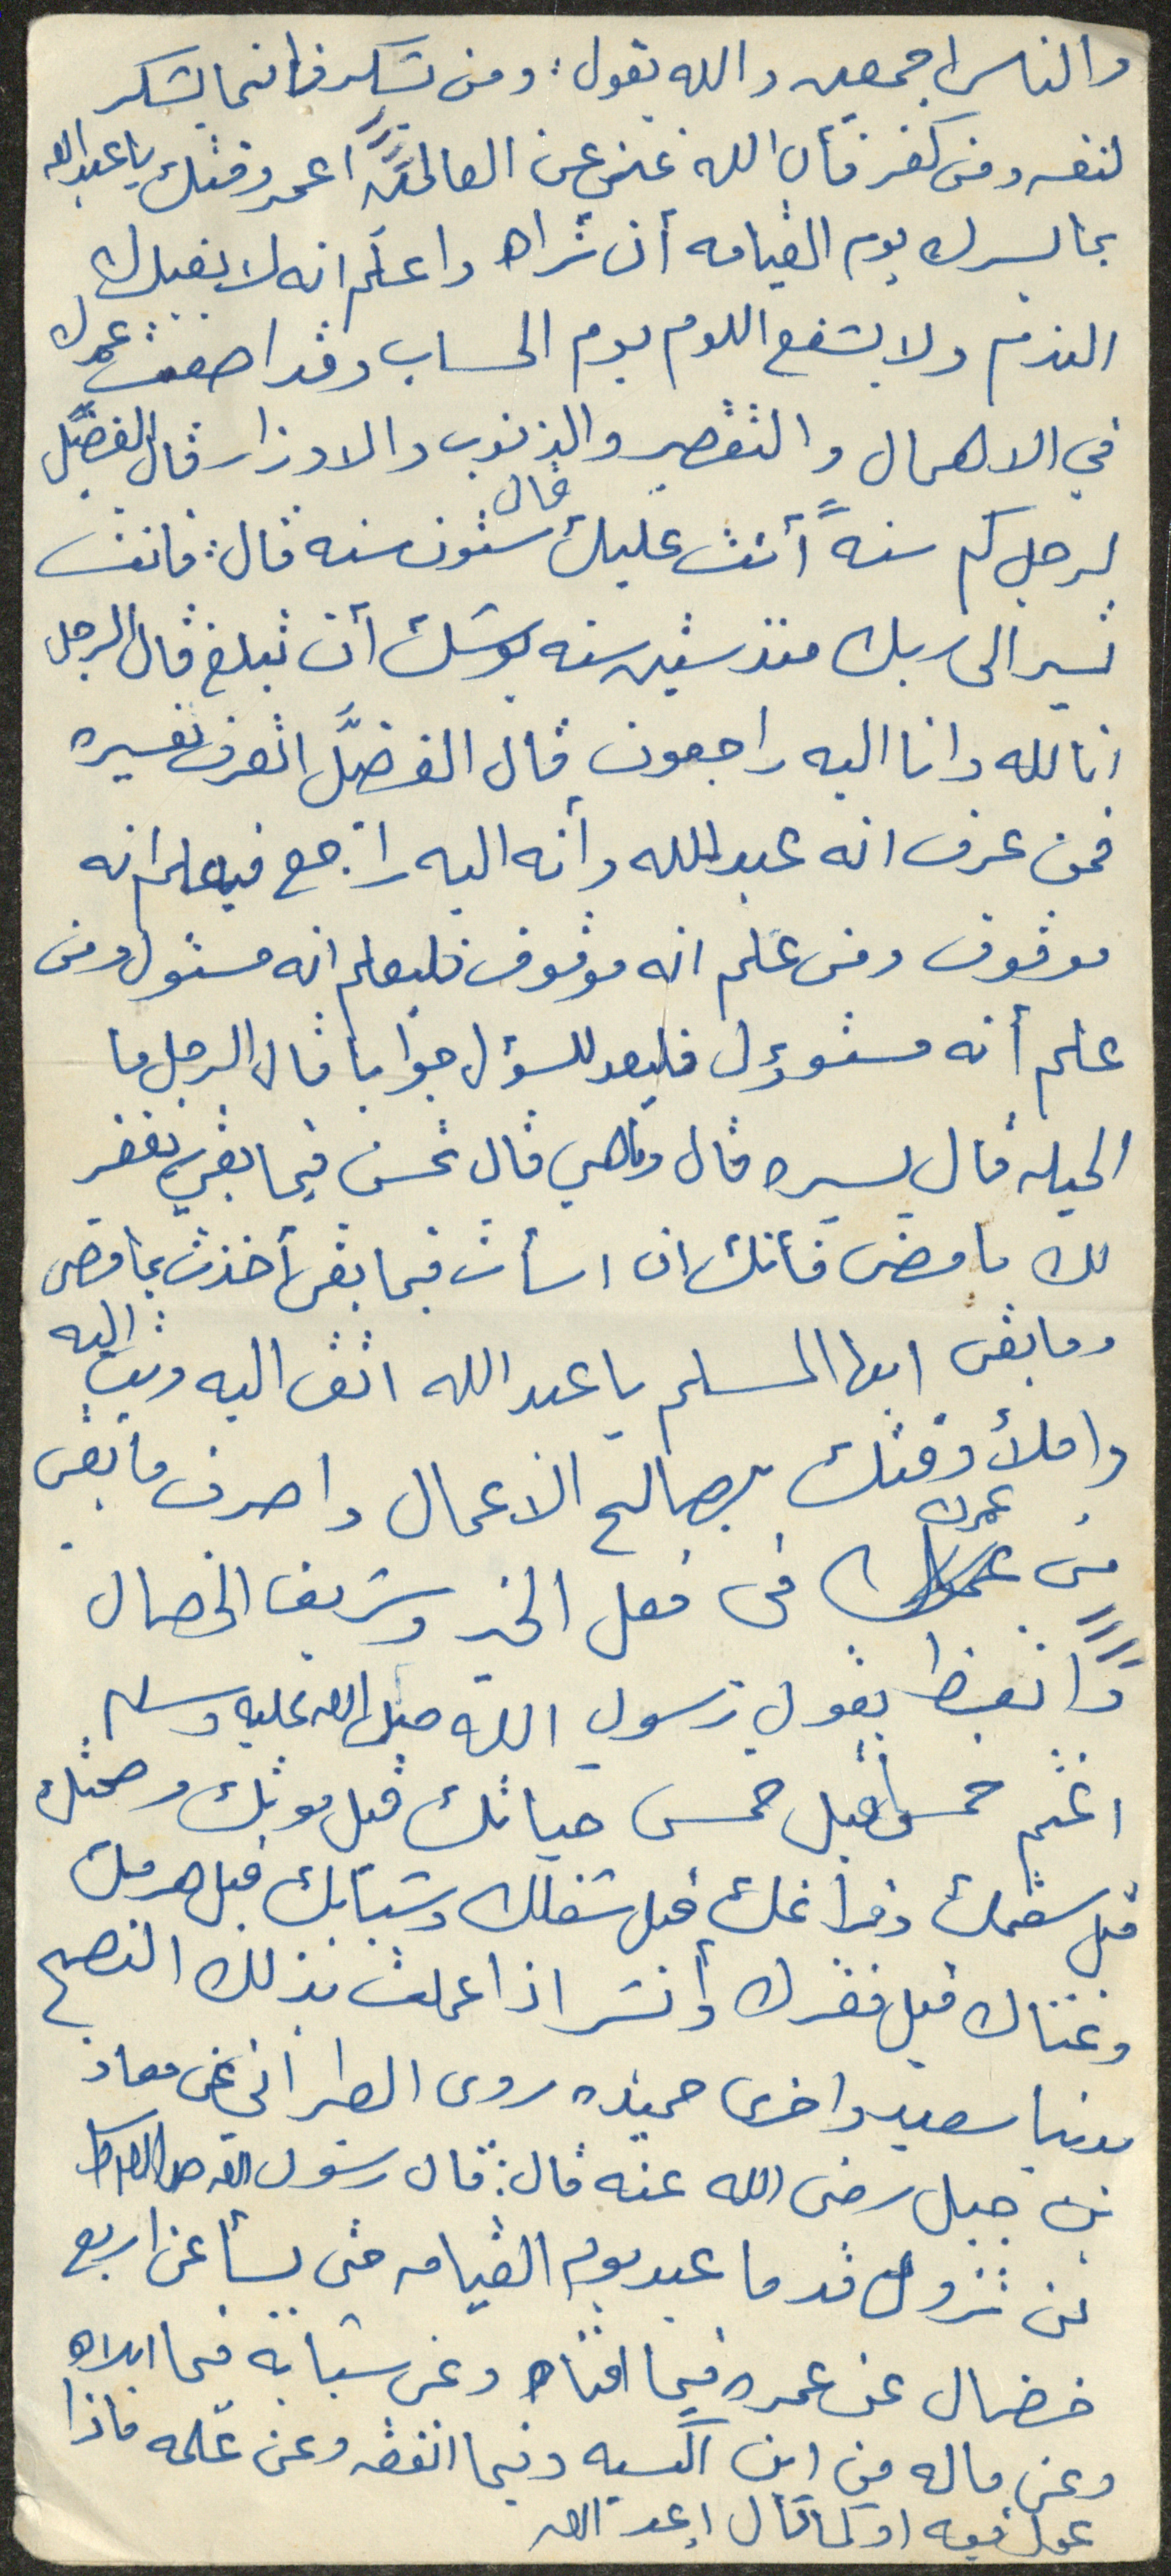 والناس اجمعين والله يقول: ومن يشكر فانما يشكر
لنفسه ومن كفر فأن الله غني عن العالمين اعمر وقتك يا عبد الله
بما يسرك يوم القيامه أن تراه واعلم انه لا يفيدك
الندم ولا يشفع اللوم يوم الحساب وقد اضعت عمرك
في الاهمال والتقصير والذنوب والاوزار قال الفضيل
لرجل كم سنةً أتت عليك قال ستون سنه قال: فانت
تسير الى ربك منذ ستين سنه يوشك أن تبلغ قال الرجل
انا لله وانا اليه راجعون قال الفضيَّل اتعرف تفسيره
فمن عرف انه عبد لله وأنه اليه راجع فيعلم انه
موقوف ومن علم انه موقوف فليعلم انه مسئول ومن
علم أنه مسئوول فليعد للسؤل جوابا قال الرجل ما
الحيله قال يسيره قال وماهي قال تحسن فيما بقي يغفر
لك ما مضى فأنك ان اسأت فيما بقى أخذت بما مضى
وما بقى ايها المسلم يا عبد الله اتق اليه وتب اليه
واملأ وقتك بصالح الاعمال واصرف ما بقى
من عمرك فى فعل الخير وشريف الخصال
واتعظ بقول رسول الله صلى الله عليه وسلم
اغتم خمساً قبل خمس حياتك قبل موتك وصحتك
قبل سقمك وفراغك قبل شغلك وشبابك قبل هرمك
وغناك قبل فقرك وأنت اذا عملت بذلك النصح
بدنيا سعيد واخرى حميده روى الطبراني عن معاذ
بن جبل رضى الله عنه قال: قال رسول الله صلى الله
لن تزول قدما عبد يوم القيامه حتى يسأ عن اربع
خصال عن عمره فيما افناه وعن شبابه فيما ابلاه
وعن ماله من اين اكسبه وفيما انفقه وعن علمه ماذا
عمل فيه او كما قال